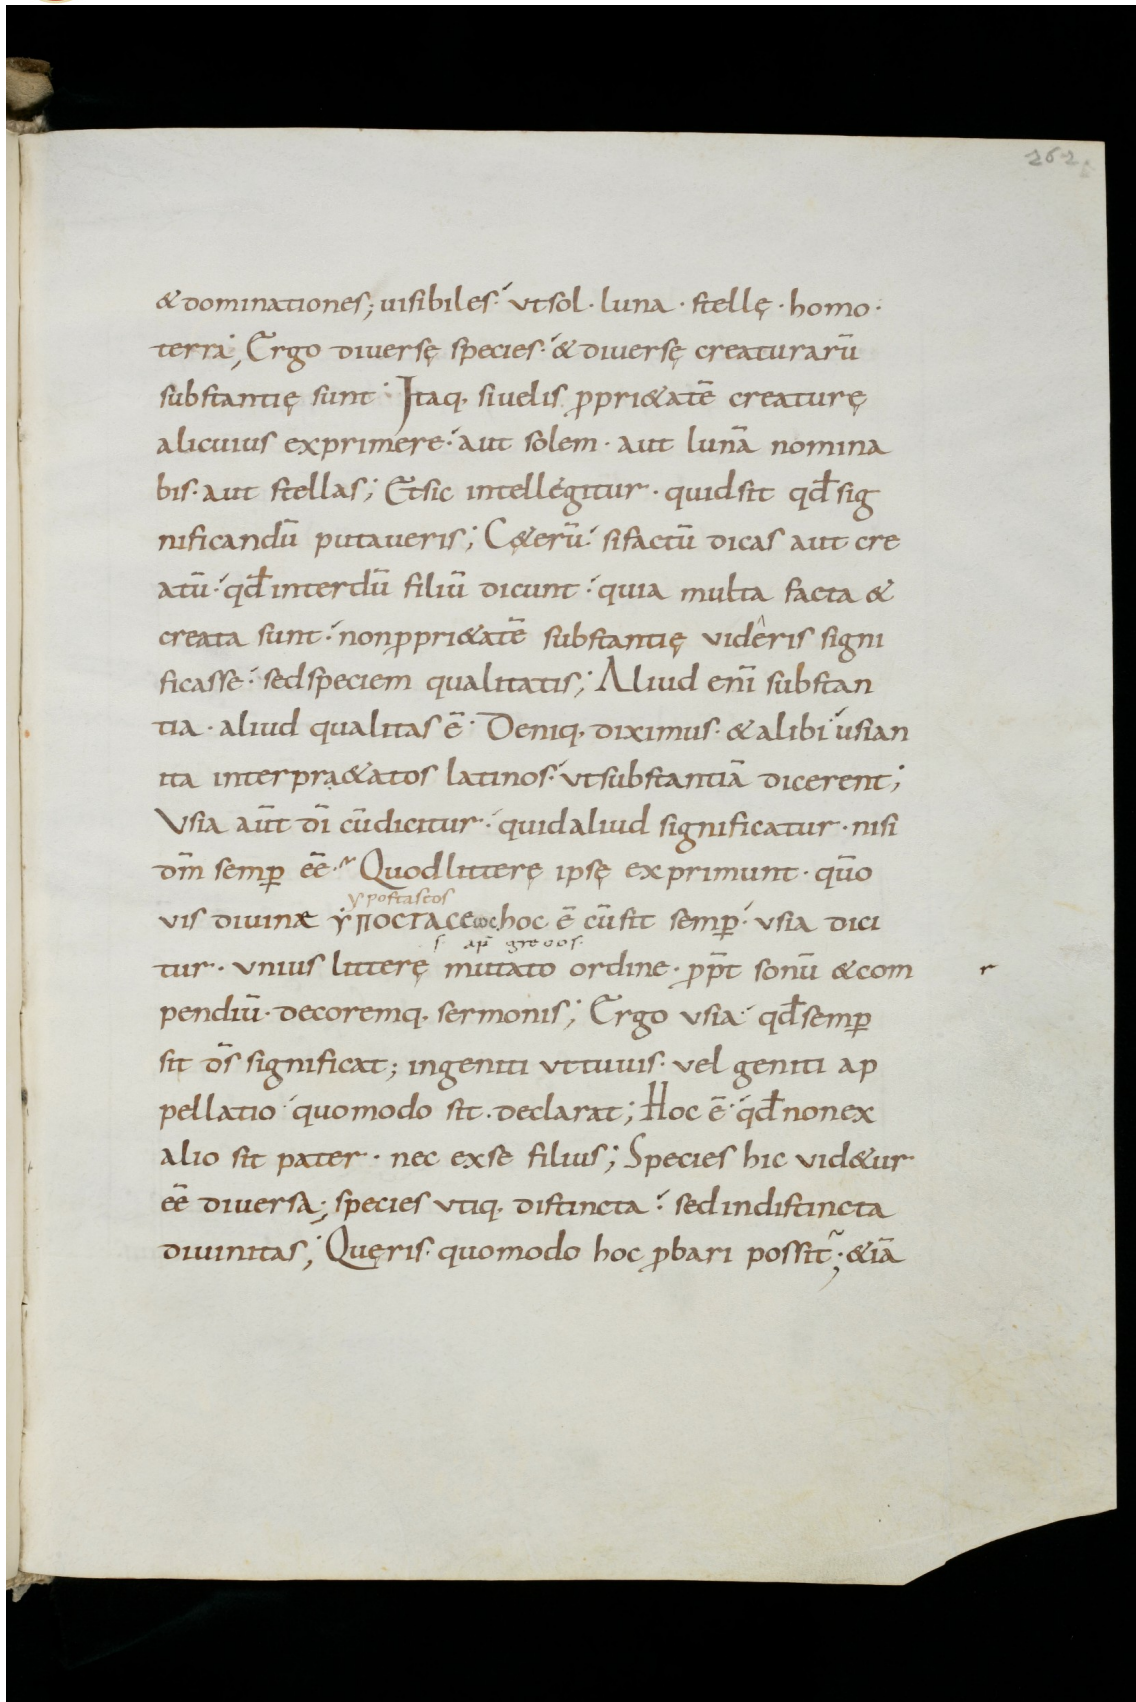 262
& dominationes; uisibiles· ut sol· luna· stellę· homo·
terra; Ergo diuersę species· & diuersę creaturarū
substantię sunt· Itaq· si uelis ꝓpri&atē creaturę
alicuius exprimere· aut solem· aut lunā nomina
bis· aut stellas; Et sic intellegitur· quid sit qđ sig
nificandū putaueris; C&erū· si factū dicas aut cre
atū· qđ interdū filiū dicunt· quia multa facta &
creata sunt· non ꝓpri&atē substantię uidêris signi
ficasse· sed speciem qualitatis; Aliud enī substan
tia· aliud qualitas ē· Deniq· diximus· & alibi usian
ita interpra&atos latinos· ut substantiā dicerent;
Usia aūt dī cū dicitur· quid aliud significatur· nisi
dm̄ semꝑ eē· Quod litterę ipsę exprimunt· qūo
ypostaseos
uis diuinae ẎΠΟCΤΑCΕωc hoc ē cū sit semꝑ· usia dici
s· ap̄ grecos·
tur· unius litterę mutato ordine· ꝓp̄t sonū & com
r
pendiū· decoremq· sermonis; Ergo usia· qđ semꝑ
sit d̄s significat; ingeniti ut tu uis· uel geniti ap
pellatio· quomodo sit· declarat; Hoc ē· qđ non ex
alio sit pater· nec ex se filius; Species hic uid&ur
eē diuersa; species utiq· distincta· sed indistincta
diuinitas; Quęris· quomodo hoc ꝓbari possit; &iā